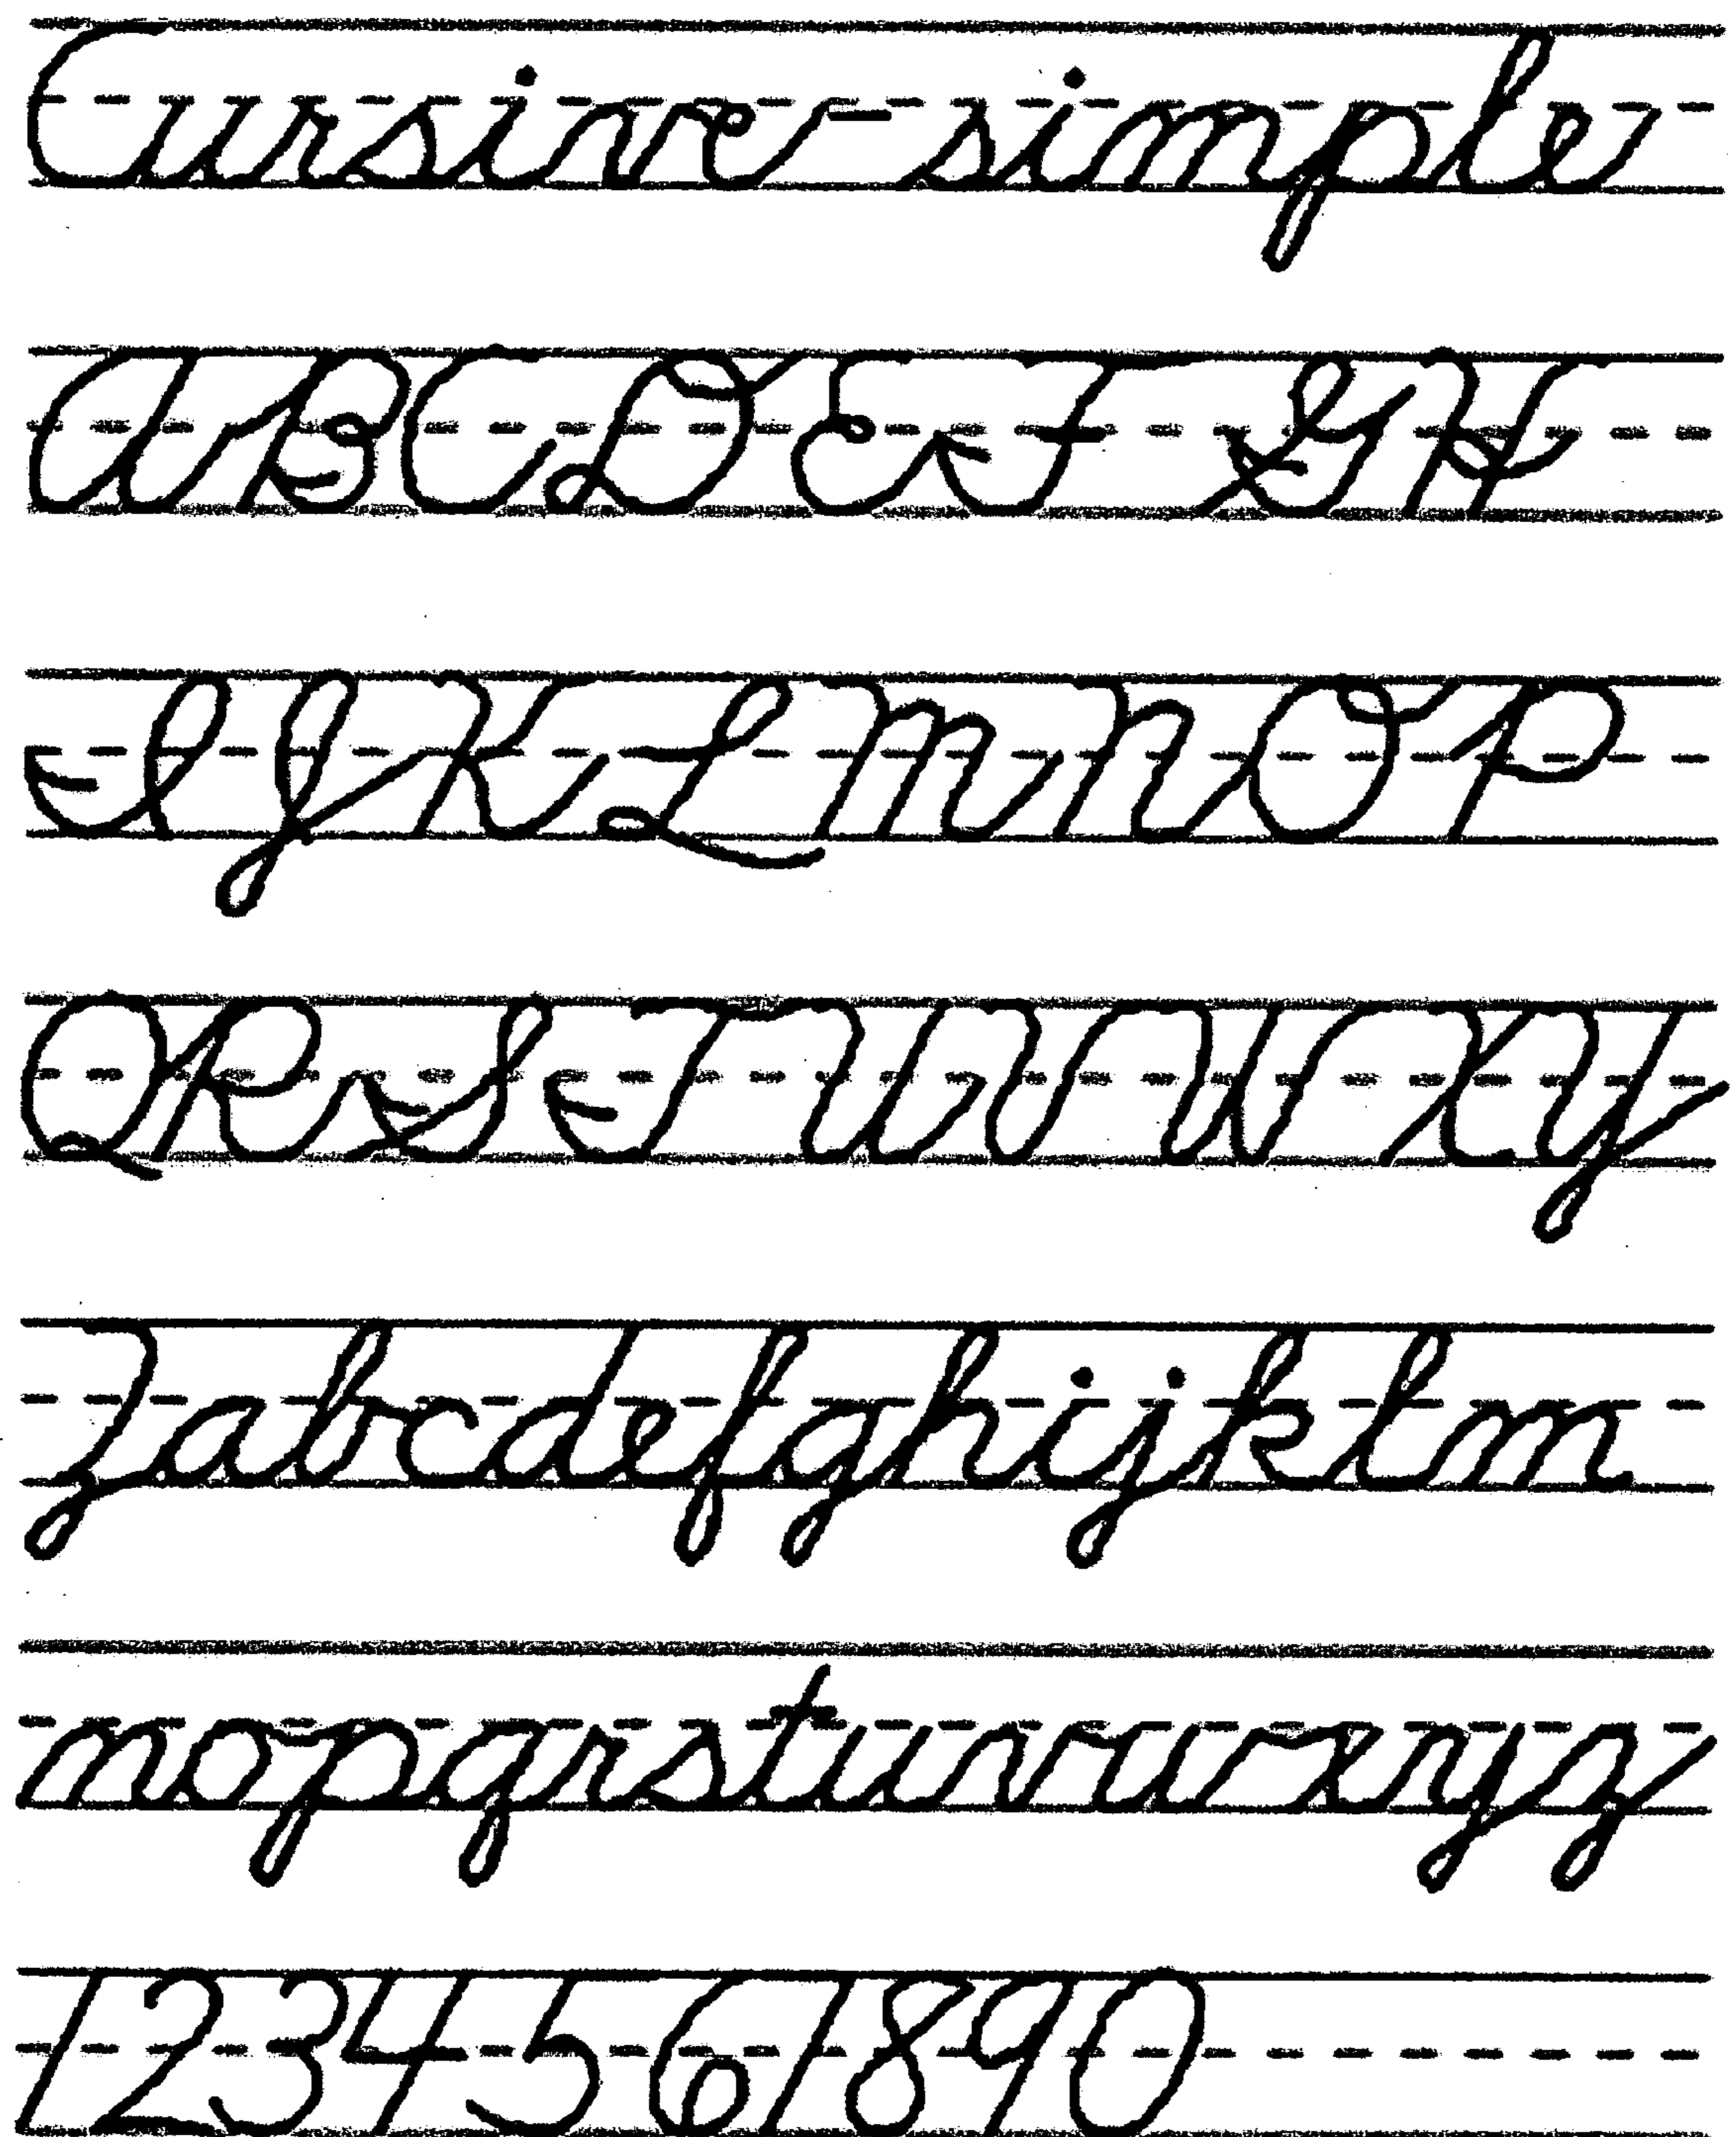 Cursive-simple
ABCDEFGH
IJKLMNOP
QRSTUVWXY
Zabcdefghijklm
nopqrstuvwxyz
1234567890